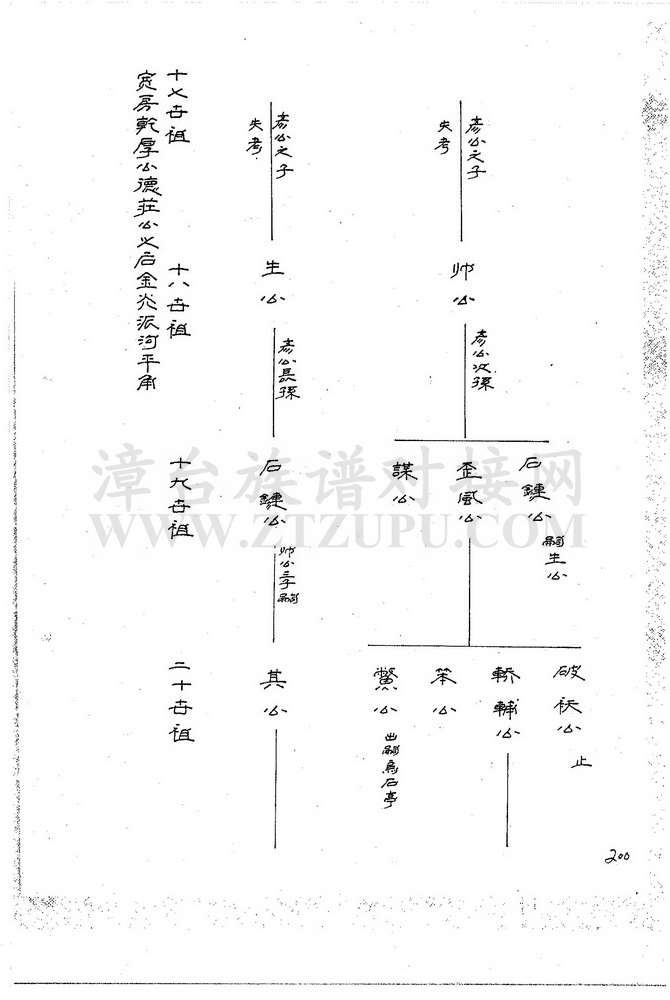 十七世祖
十八世祖
十九世祖
二十世祖
宽房乾厚公德莊公之后金炎派河平角
彦公之子
失考
生公
彦公長孫
石鏈公
帅公三子嗣
其公
彦公之子
失考
帅公
彦公次孫
謀公
歪風公
石鏈公
嗣生公
鱉公
出嗣烏石亭
笨公
轎輔公
破袄公
止
200
漳台族谱对接网
WWW.ZTZUPU.COM